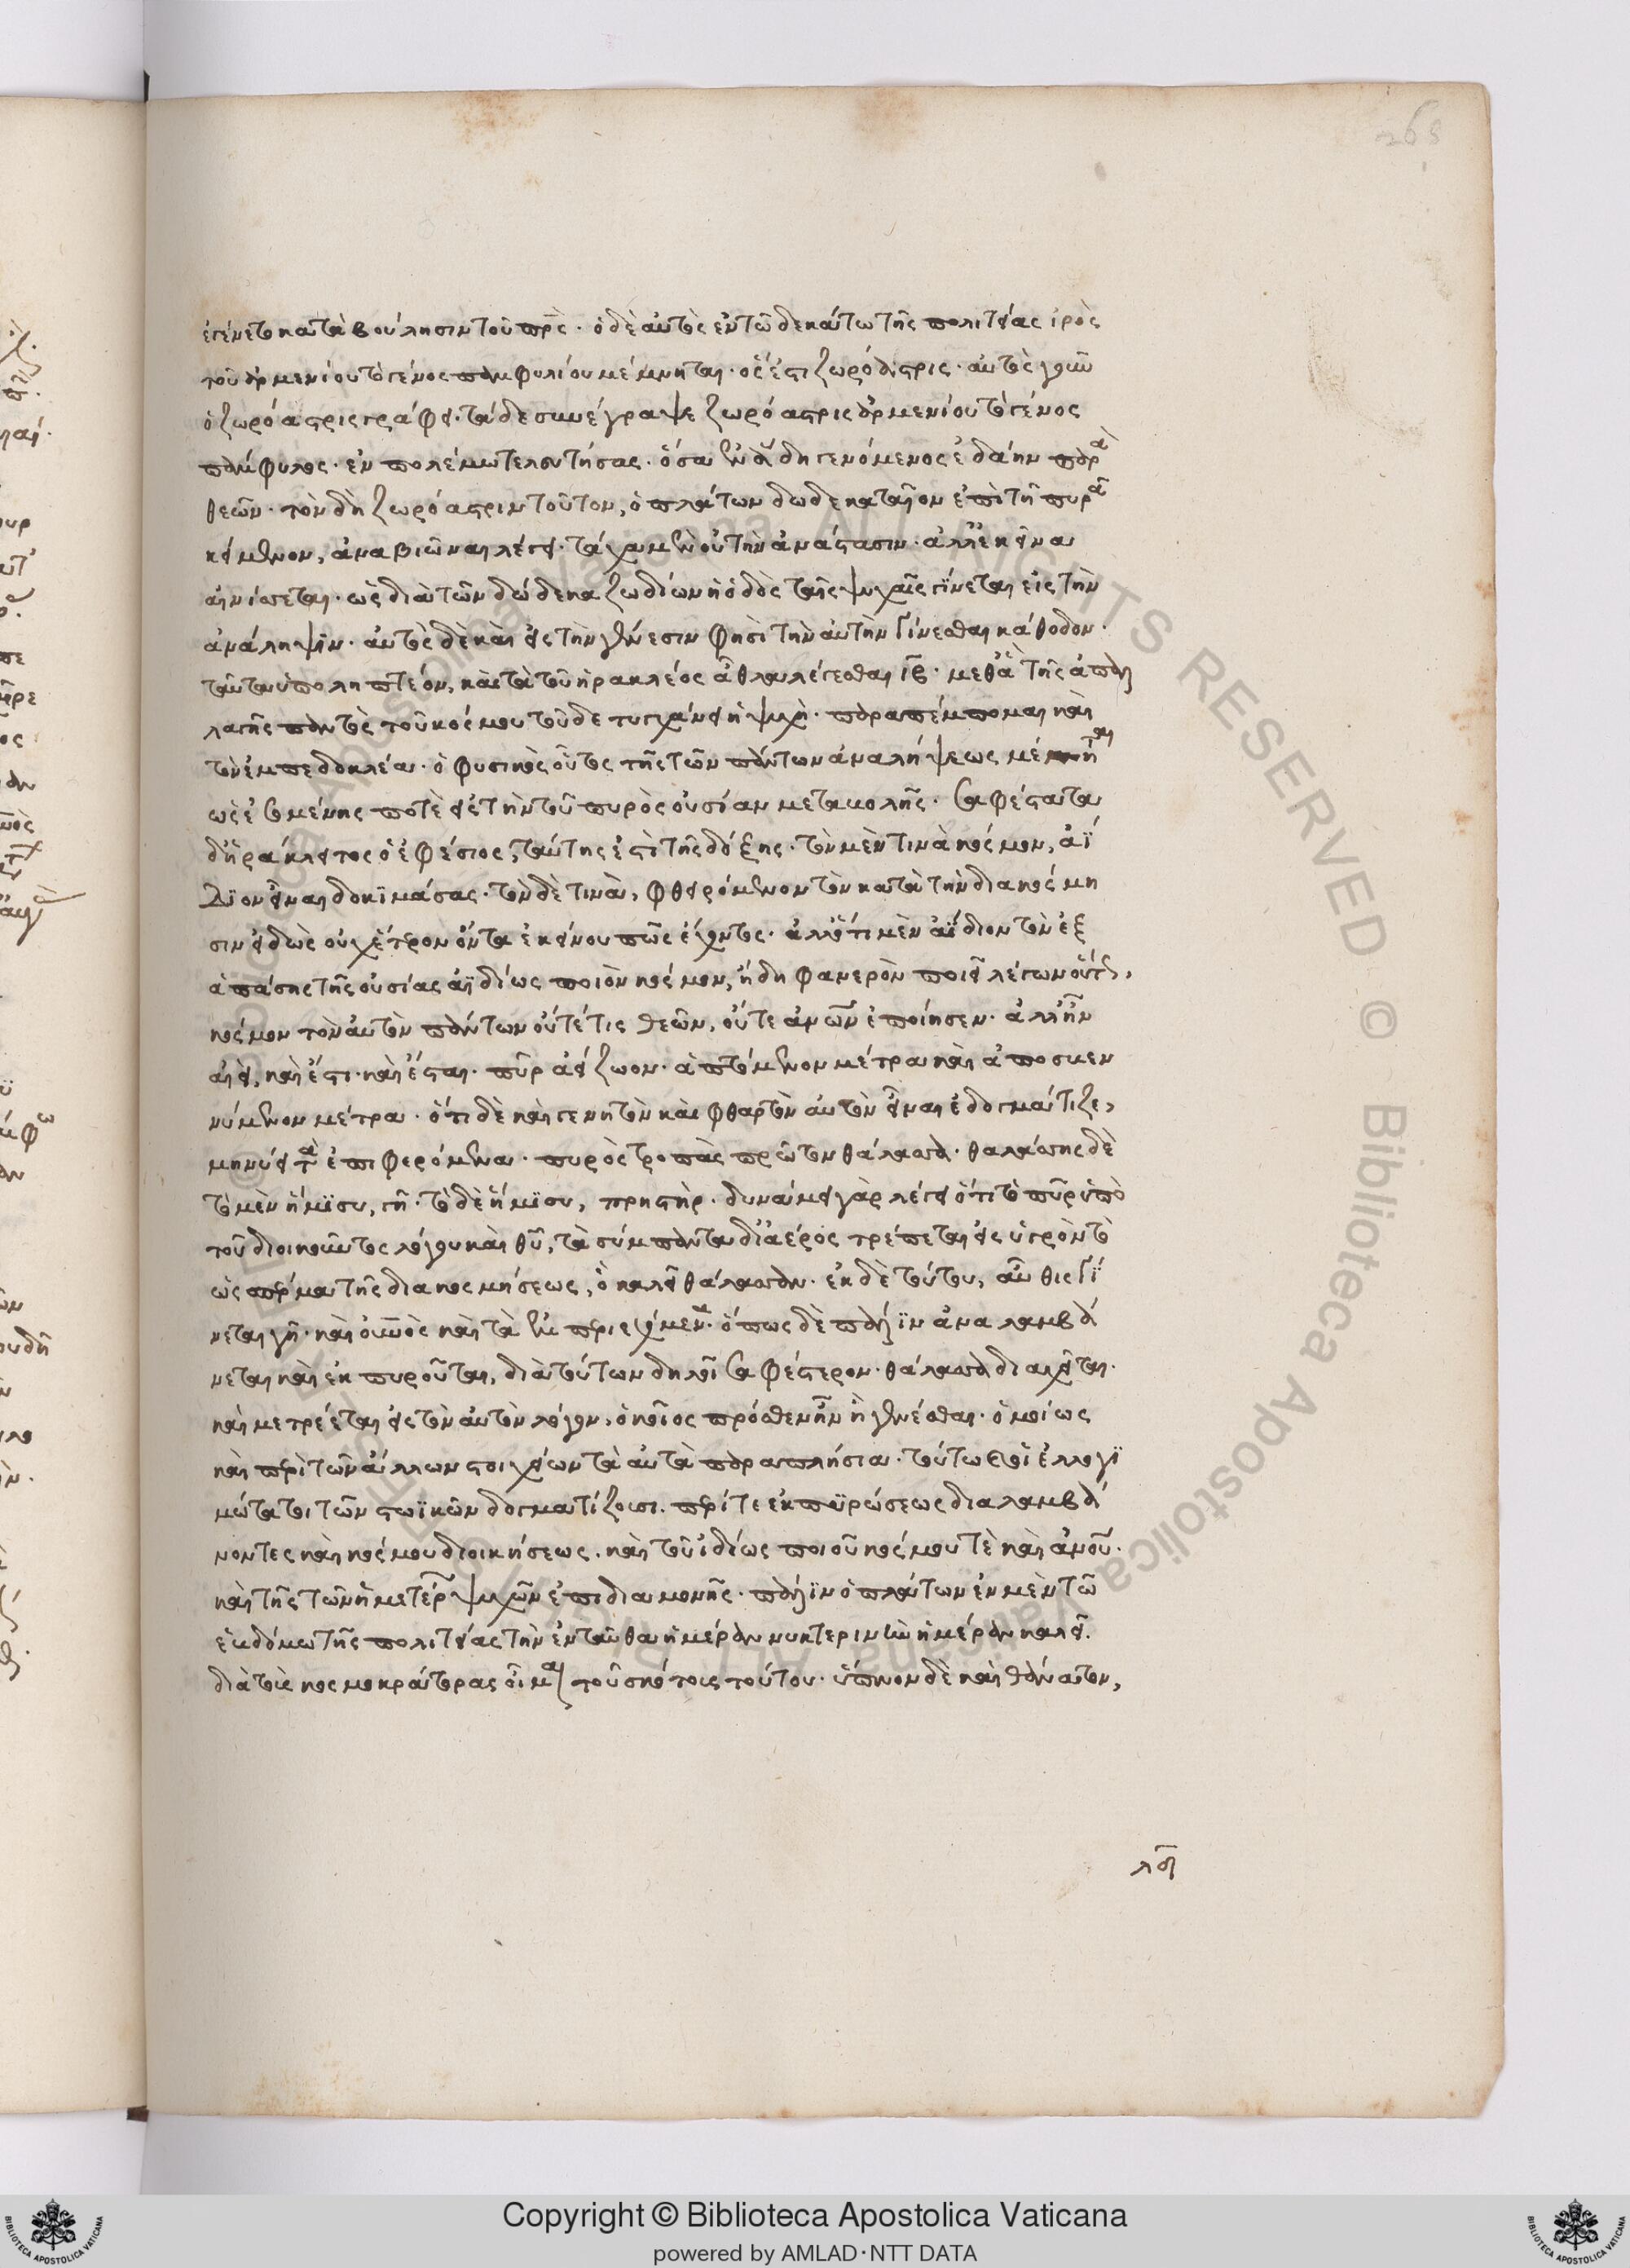 268
ἐγένετο κατὰ βούλησιν τοῦ πρ̅ς̀. ὁ δὲ αὐτὸς ἐν τῶ δεκάτω τῆς πολιτείας ἠρὸς
τοῦ ἀρμενίου τὸ γένος παμφυλίου μέμνηται. ὅς ἐστι ζωρόαστρις. αὐτὸς γοῦν
ὁ ζωρόαστρις γράφει. τάδε συνέγραψε ζωρόαστρις ἀρμενίου τὸ γένος
πάμφυλος. ἐν πολέμω τελευτήσας. ὅσα ἐν ἅδη γενόμενος ἐδάην παρὰ
θεῶν. τὸν δὴ ζωρόαστριν τοῦτον, ὁ πλάτων δωδεκαταῖον ἐπὶ τῆ πυρᾶ
κείμενον, ἀναβιῶναι λέγει. τάχα μὲν οὖν τὴν ἀνάστασιν. ἀλλ' ἐκεῖνα
αἰνίσσεται. ὡς διὰ τῶν δώδεκα ζωδίων ἡ ὁδὸς ταῖς ψυχαῖς γίνεται εἰς τὴν
ἀνάληψιν. αὐτὸς δὲ καὶ εἰς τὴν γένεσιν φησὶ τὴν αὐτὴν γίνεσθαι κάθοδον.
ταύτη ὑποληπτέον, καὶ τὰ τοῦ ἡρακλέος ἆθλα λέγεσθαι ιβ̅. μεθ' ἃ τῆς ἀπαλ
λαγῆς παντὸς τοῦ κόσμου τοῦδε τυγχάνει ἡ ψυχὴ. παραπέμπομαι καὶ
τὸν ἐμπεδοκλέα. ὁ φυσικὸς οὗτος τῆς τῶν πάντων ἀναλήψεως μέμνηται
ὡς ἐσομένης ποτὲ εἰς τὴν τοῦ πυρὸς οὐσίαν μεταβολῆς. σαφέστατα
δ' ἡράκλειτος ὁ ἐφέσιος, ταύτης ἐστὶ τῆς δόξης. τὸν μὲν τινὰ κόσμον, ἀΐ
διον εἶναι δοκιμάσας. τὸν δὲ τινὰ, φθειρόμενον τὸν κατὰ τὴν διακόσμη
σιν εἰδὼς οὐχ ἕτερον ὄντα ἐκείνου πῶς ἔχοντος. ἀλλ' ὅτι μὲν ἀΐδιον τὸν ἐξ
ἁπάσης τῆς οὐσίας ἀϊδίως ποιὸν κόσμον, ἤδη φανερὸν ποιεῖ λέγων οὕτως,
κόσμον τὸν αὐτὸν πάντων οὔτέ τις θεῶν, οὔτε ἀν̅ω̅ν ἐποίησεν. ἀλλ' ἦν
ἀεὶ, καὶ ἔστι. καὶ ἔσται. πῦρ ἀείζωον. ἁπτόμενον μέτρα καὶ ἀποσβεν
νύμενον μέτρα. ὅτι δὲ καὶ γενητὸν καὶ φθαρτὸν αὐτὸν εἶναι ἐδογμάτιζε,
μηνύει τὰ ἐπιφερόμενα. πυρὸς τροπὰς πρῶτον θάλασσα. θαλάσσης δὲ
τὸ μὲν ἥμισυ, γῆ. τὸ δὲ ἥμισυ, πρηστὴρ. δυνάμει γὰρ λέγει ὅτι τὸ πῦρ ὑπὸ
τοῦ διοικοῦντος λόγου καὶ θ̅υ̅, τὰ σύμπαντα δι' ἀέρος τρέπεται εἰς ὑγρὸν τὸ
ὡς σπέρμα τῆς διακοσμήσεως, ὃ καλεῖ θάλασσαν. ἐκ δὲ τούτου, αὖθις γί
νεται γῆ. καὶ οὐ̅νὸς καὶ τὰ ἐμπεριεχόμενα. ὅπως δὲ πάλιν ἀναλαμβά
νεται καὶ ἐκπυροῦται, διὰ τούτων δηλοῖ σαφέστερον. θάλασσα διαχεῖται.
καὶ μετρέεται εἰς τὸν αὐτὸν λόγον, ὁκοῖος πρόσθεν ἦν ἢ γενέσθαι. ὁμοίως
καὶ περὶ τῶν ἄλλων στοιχείων τὰ αὐτὰ παραπλήσια. τούτω καὶ οἱ ἐλλογι
μώτατοι τῶν στωϊκῶν δογματίζουσι. περί τε ἐκπυρώσεως διαλαμβά
νοντες καὶ κόσμου διοικήσεως. καὶ τοῦ ἰδίως ποιοῦ κόσμου τὲ καὶ ἀν̅ο̅υ.
καὶ τῆς τῶν ἡμετέρων ψυχῶν ἐπιδιαμονῆς. πάλιν ὁ πλάτων ἐν μὲν τῶ
ἑβδόμω τῆς πολιτείας τὴν ἐνταῦθα ἡμέραν νυκτερινὴν ἡμέραν καλεῖ.
διὰ τοὺς κοσμοκράτορας οἶμαι τοῦ σκότους τούτου. ὕπνον δὲ καὶ θάνατον,